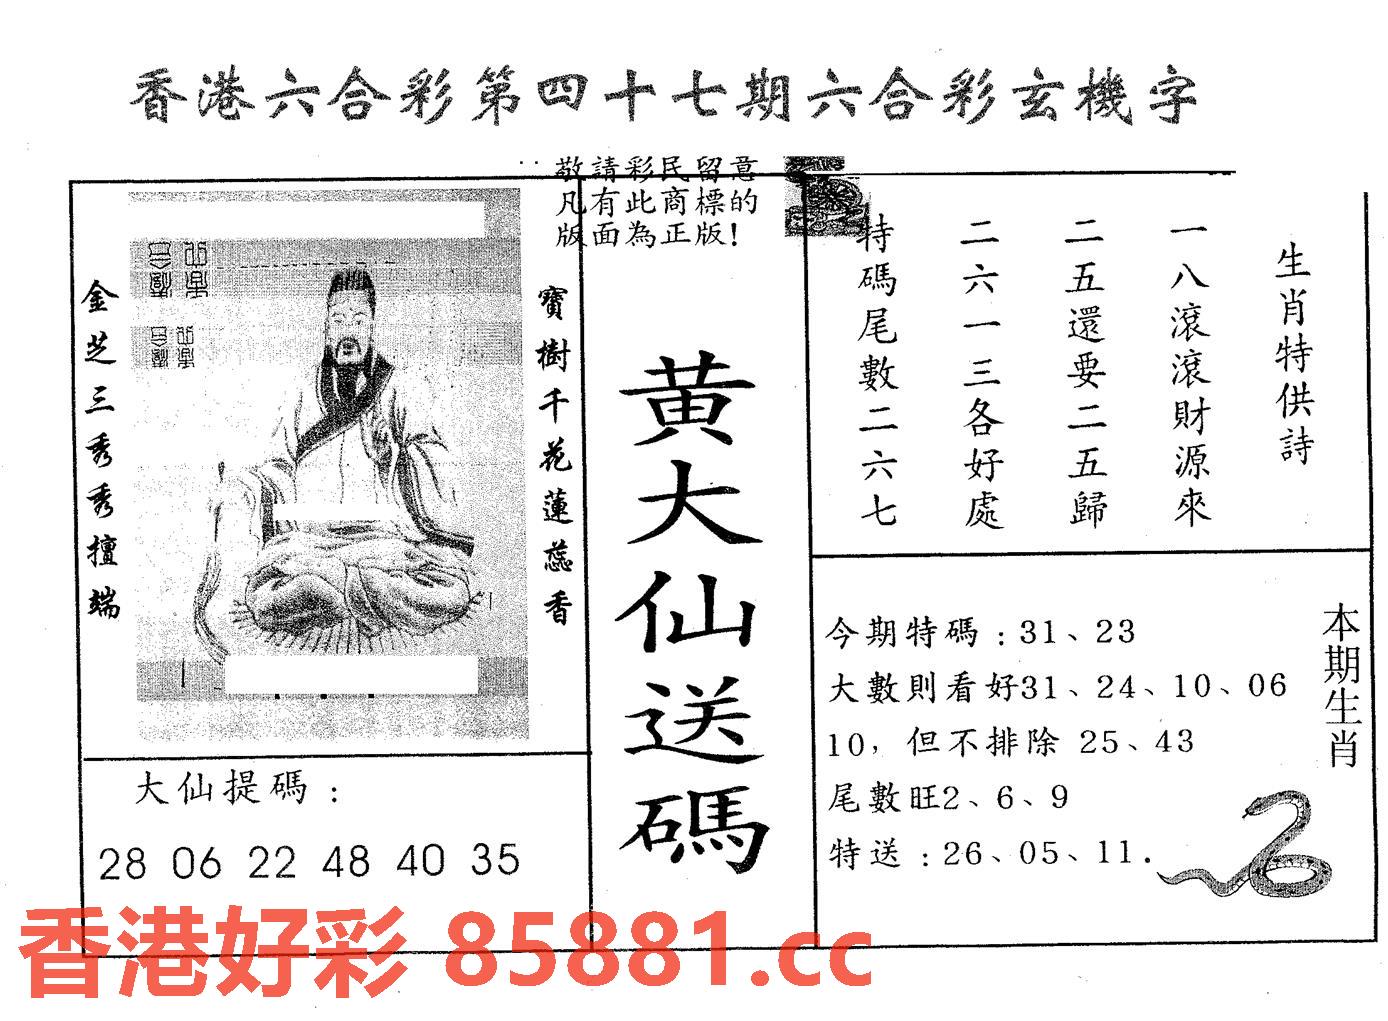 香港六合彩第四十七期六合彩玄機字
敬請彩民留意
凡有此商標的
版面為正版!
金芝三秀秀擅端
寶樹千花蓮蕊香
黃大仙送碼
生肖特供詩
一八滾滾財源來
二五還要二五歸
二六一三各好處
特碼尾數二六七
大仙提碼:
28 06 22 48 40 35
今期特碼:31、23
大數則看好31、24、10、06
10,但不排除 25、43
尾數旺2、6、9
特送:26、05、11.
本期生肖
香港好彩 85881.cc